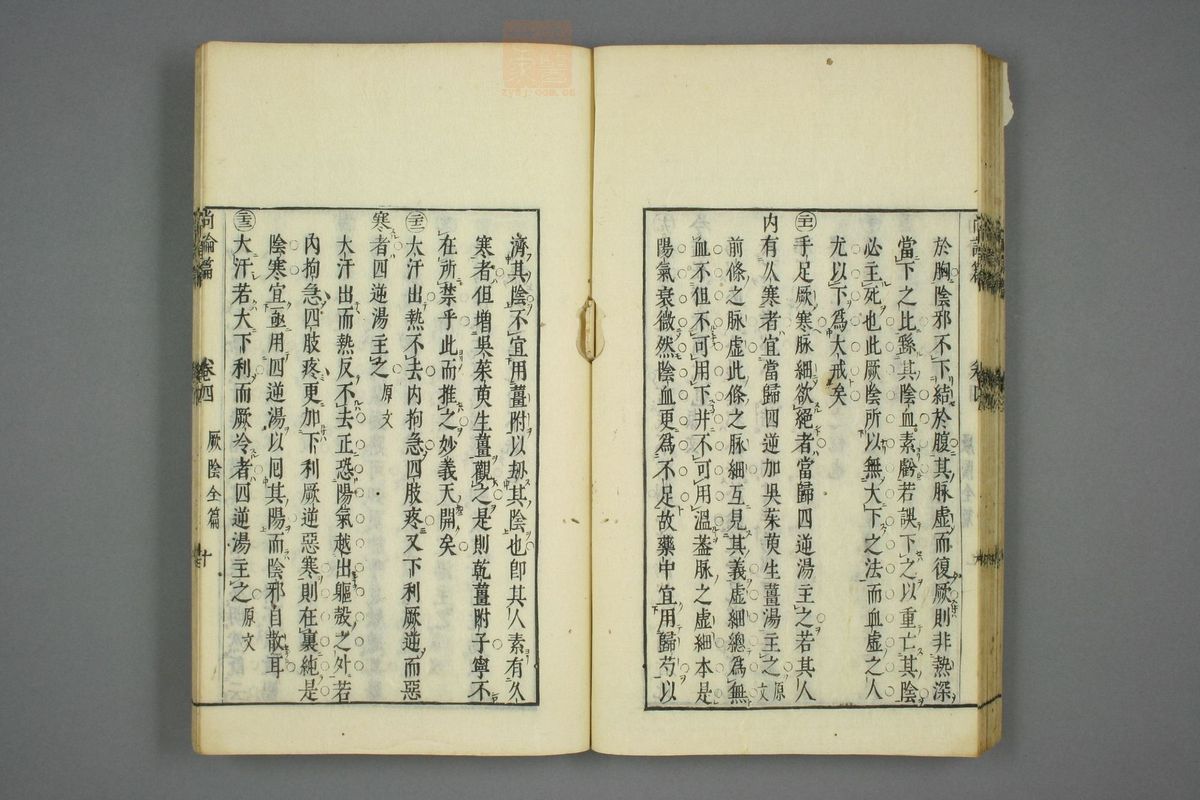 於胸陰邪不下結於腹其脉虚而復厥則非熱深
當下之比繇其陰血素虧若誤下之以重亡其陰
必主死也此厥陰所以無大下之法而血虚之人
尤以下爲大戒矣
手足厥寒脉細欲絕者當歸四逆湯主之若其人
内有久寒者宜當歸四逆加吳茱萸生薑湯主之原文
前條之脉虚此條之脉細互見其義虚細總爲無
血不但不可用下并不可用溫葢脉之虚細本是
陽氣衰微然陰血更爲不足故藥中宜用歸芍以
濟其陰不宜用薑附以刼其陰也卽其人素有久
寒者但增吳茱萸生薑觀之是則乾薑附子寧不
在所禁乎此而推之妙義天開矣
大汗出熱不去内拘急四肢疼又下利厥逆而惡
寒者四逆湯主之 原文
大汗出而熱反不去正恐陽氣越出軀殼之外若
内拘急四肢疼更加下利厥逆惡寒則在裏純是
陰寒宜亟用四逆湯以囘其陽而陰邪自散耳
大汗若大下利而厥冷者四逆湯主之 原文
尚論篇 卷四 厥陰全篇 十
zysj.com.cn